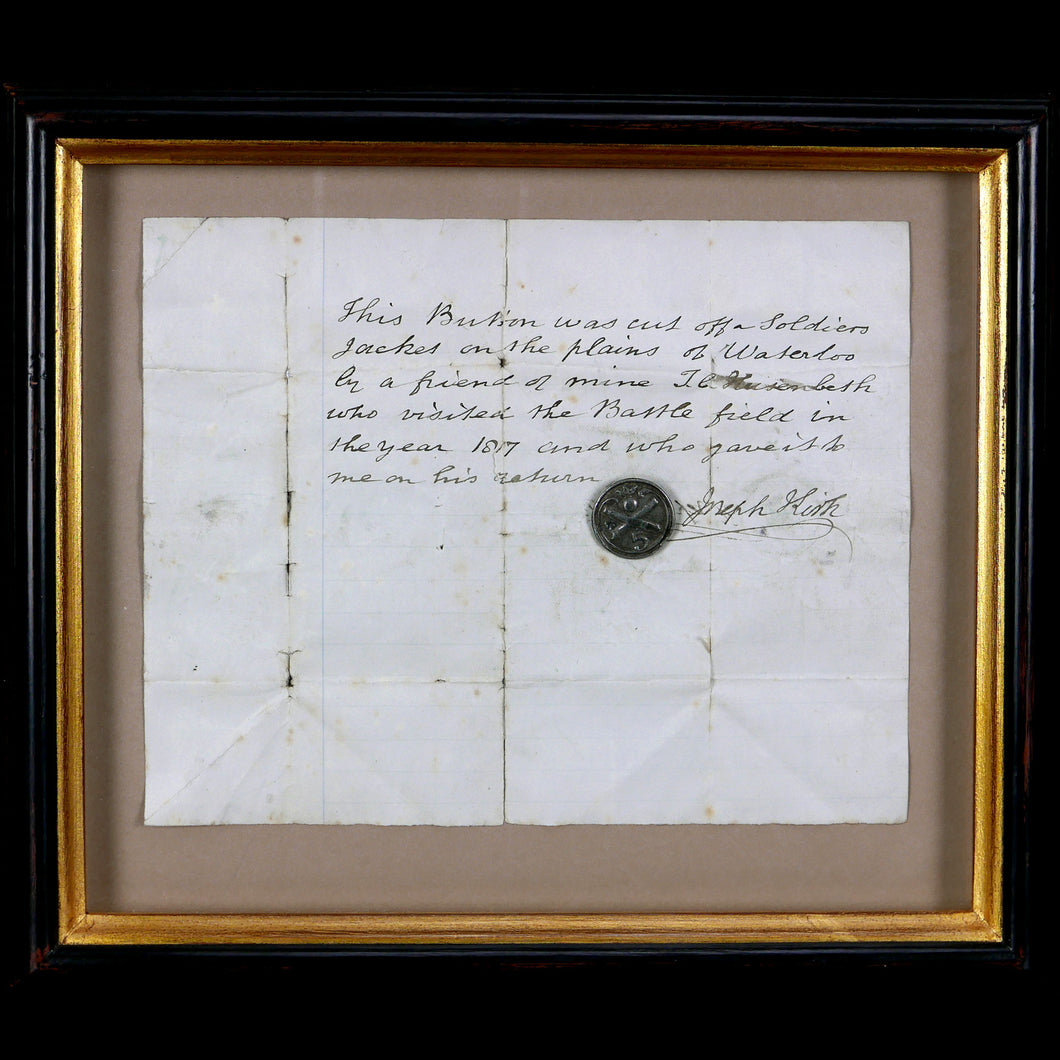 This Button was cut off a Soldiers
Jacket on the plains of Waterloo
by a friend of mine
who visited the Battle field in
the year 1817 and who gave it to
me on his return
5
Joseph Kirk